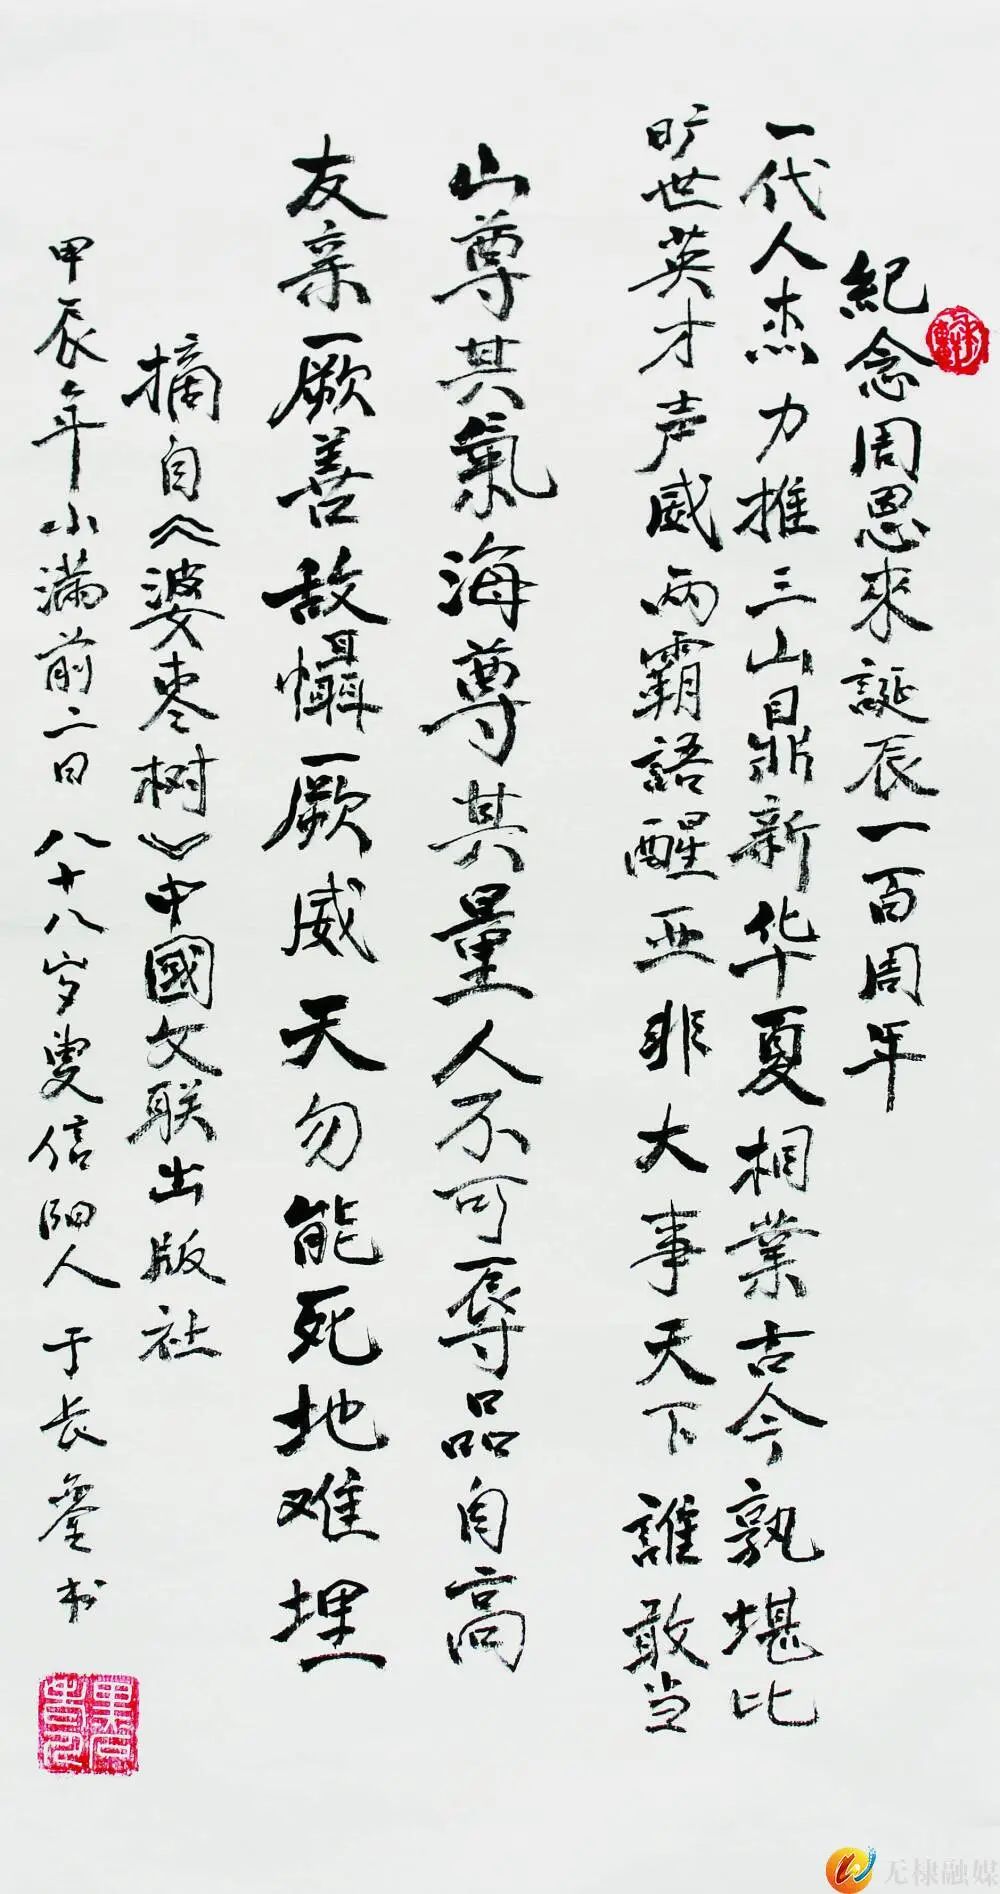 紀念周恩來誕辰一百周年
一代人杰力推三山鼎新华夏相業古今孰堪比
旷世英才声威两霸語醒亚非大事天下誰敢当
山尊其氣海尊其量人不可辱品自高
友亲厥善敌懾厥威天勿能死地难埋
摘自《婆枣树》中國文联出版社
甲辰年小满前二日八十八岁叟信阳人于长銮书
无棣融媒